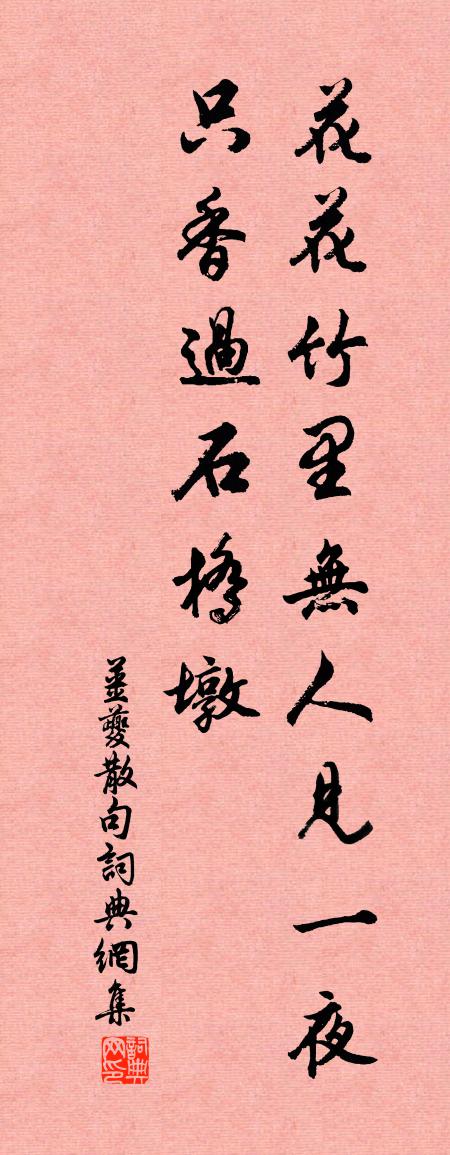 花花竹里無人見一夜
只香過石橋墩
薑夔散句詞典網集
詞典
网印